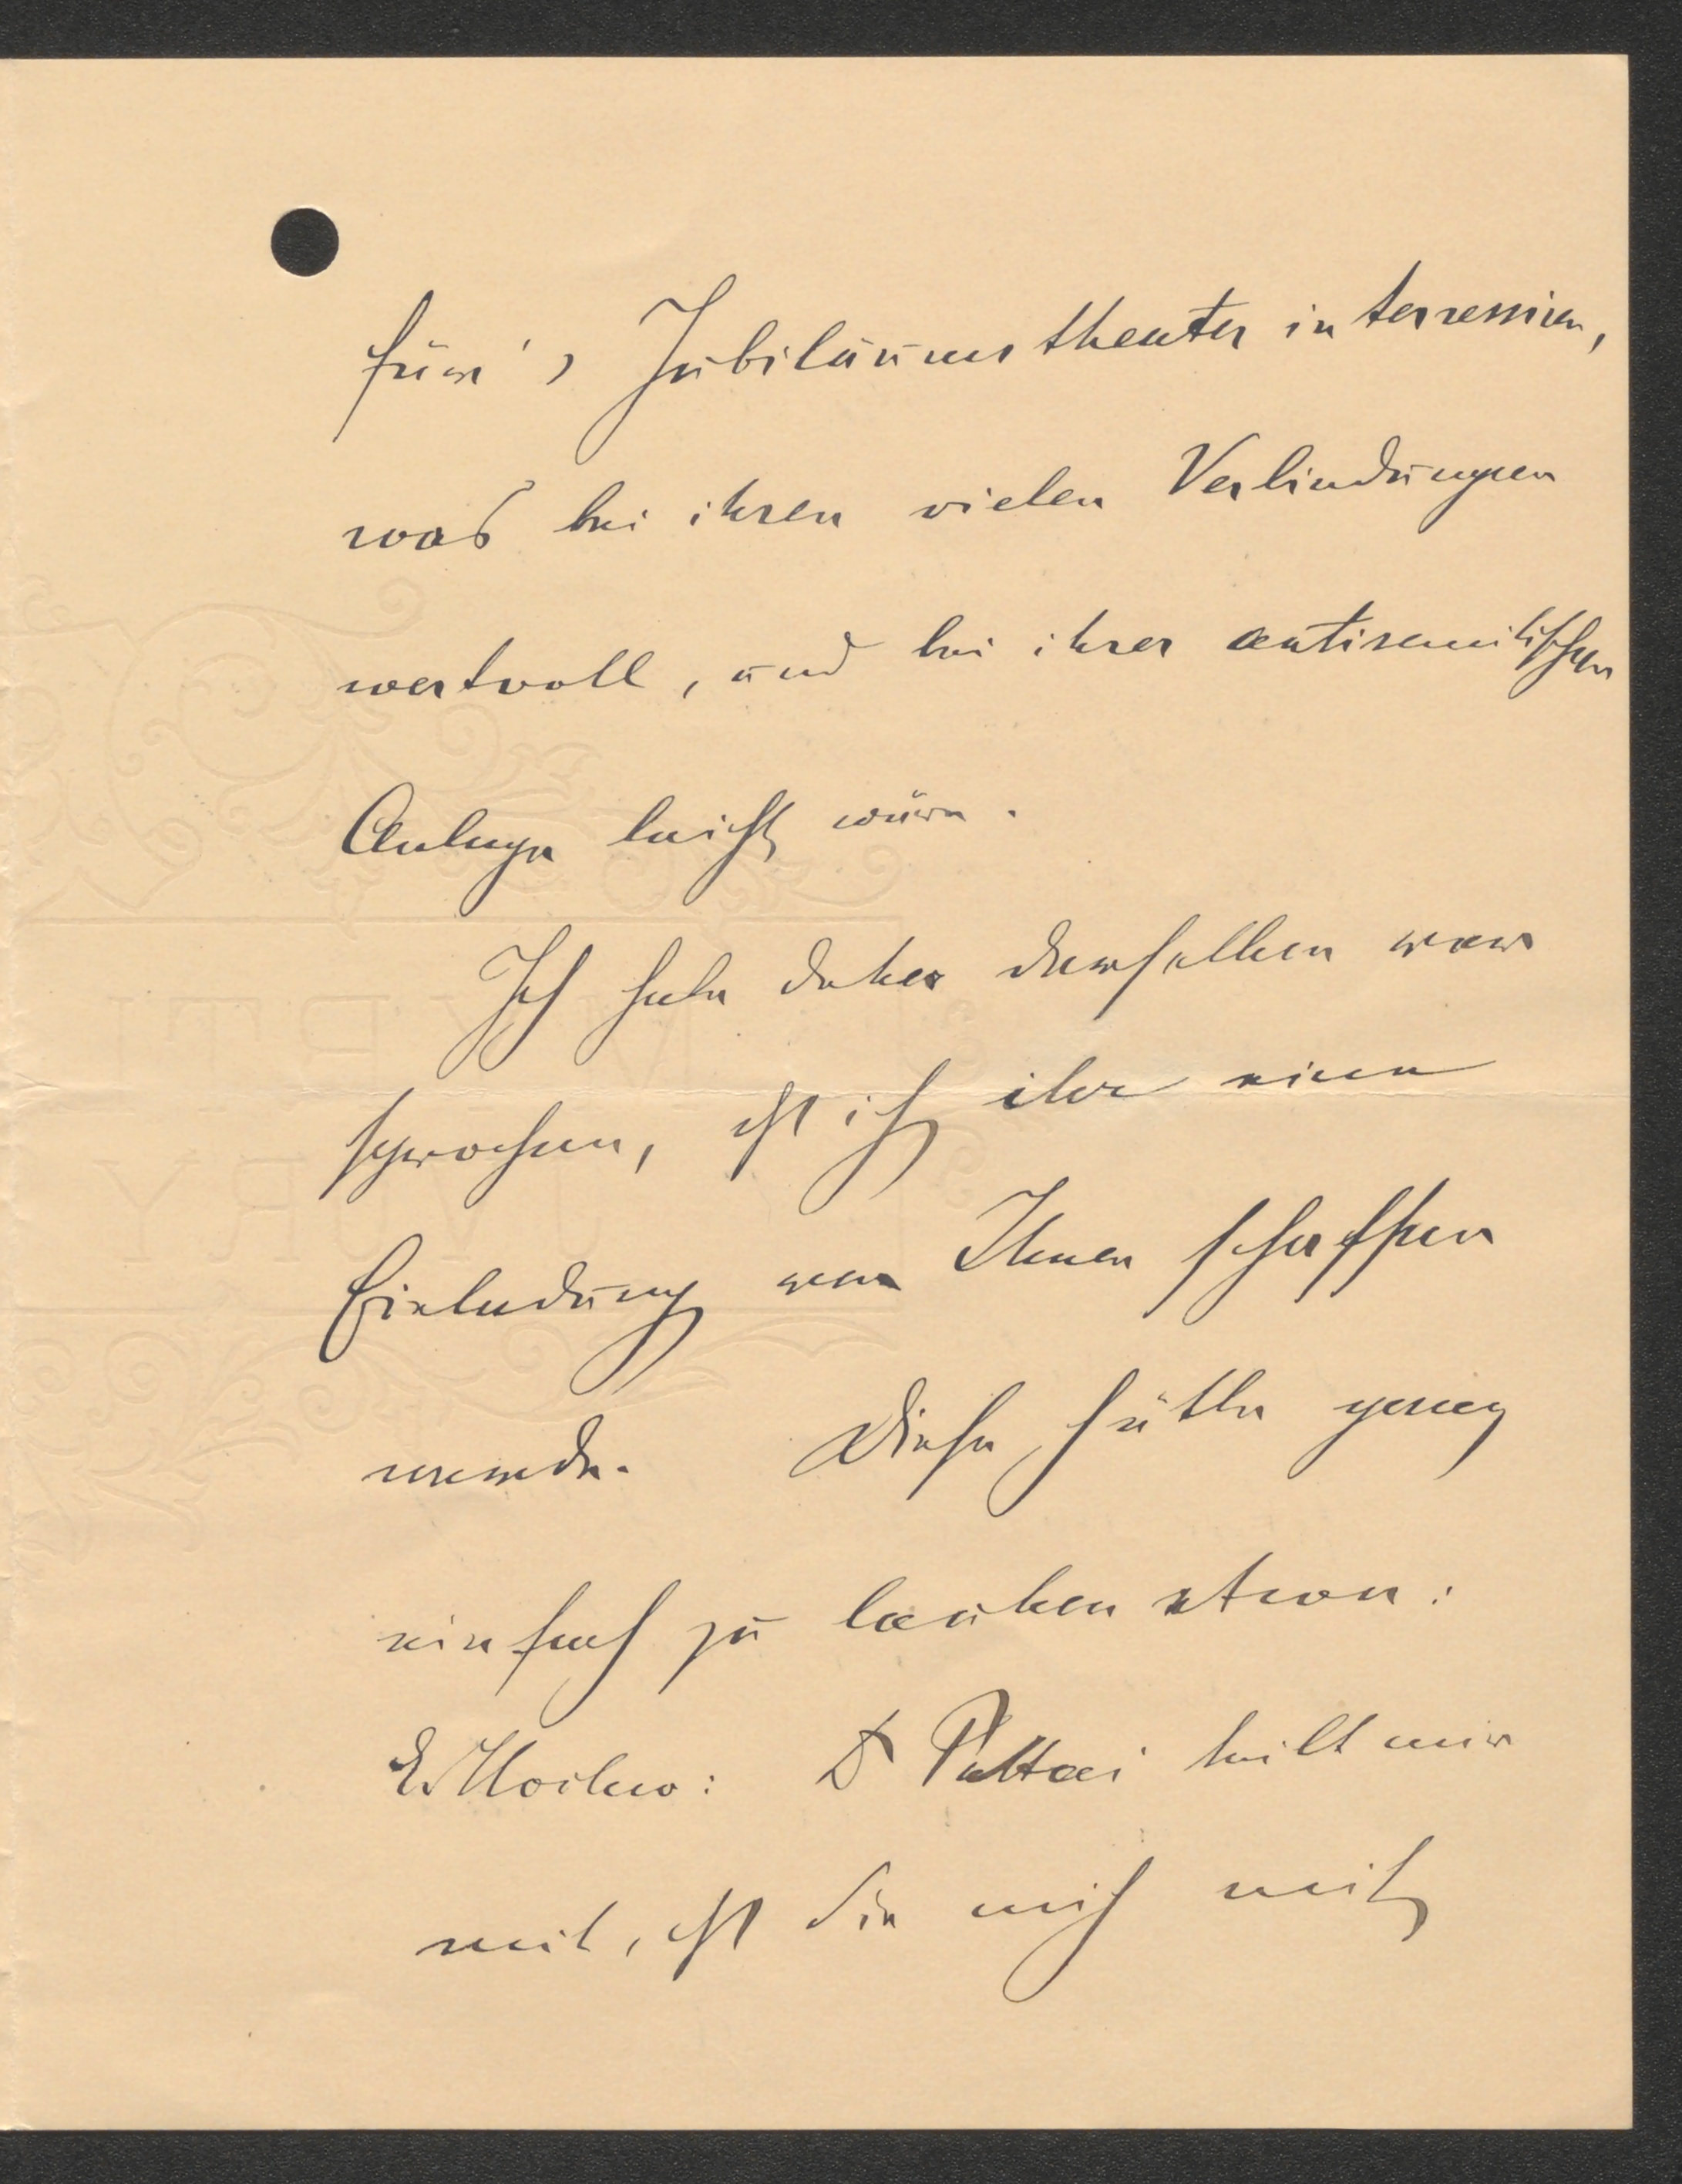 für's Jubiläumstheater interressiren,
was bei ihren vielen Verbindungen
wertvoll, und bei ihrer antisemitischen
Anlage leicht wäre.
Ich habe daher derselben ver
sprochen, dß ich ihr eine
Einladung von Ihnen schaffen
werde. Diese hätte ganz
einfach zu lauten etwa:
D Pattai teilt mir
mit, dß Sie mich mit